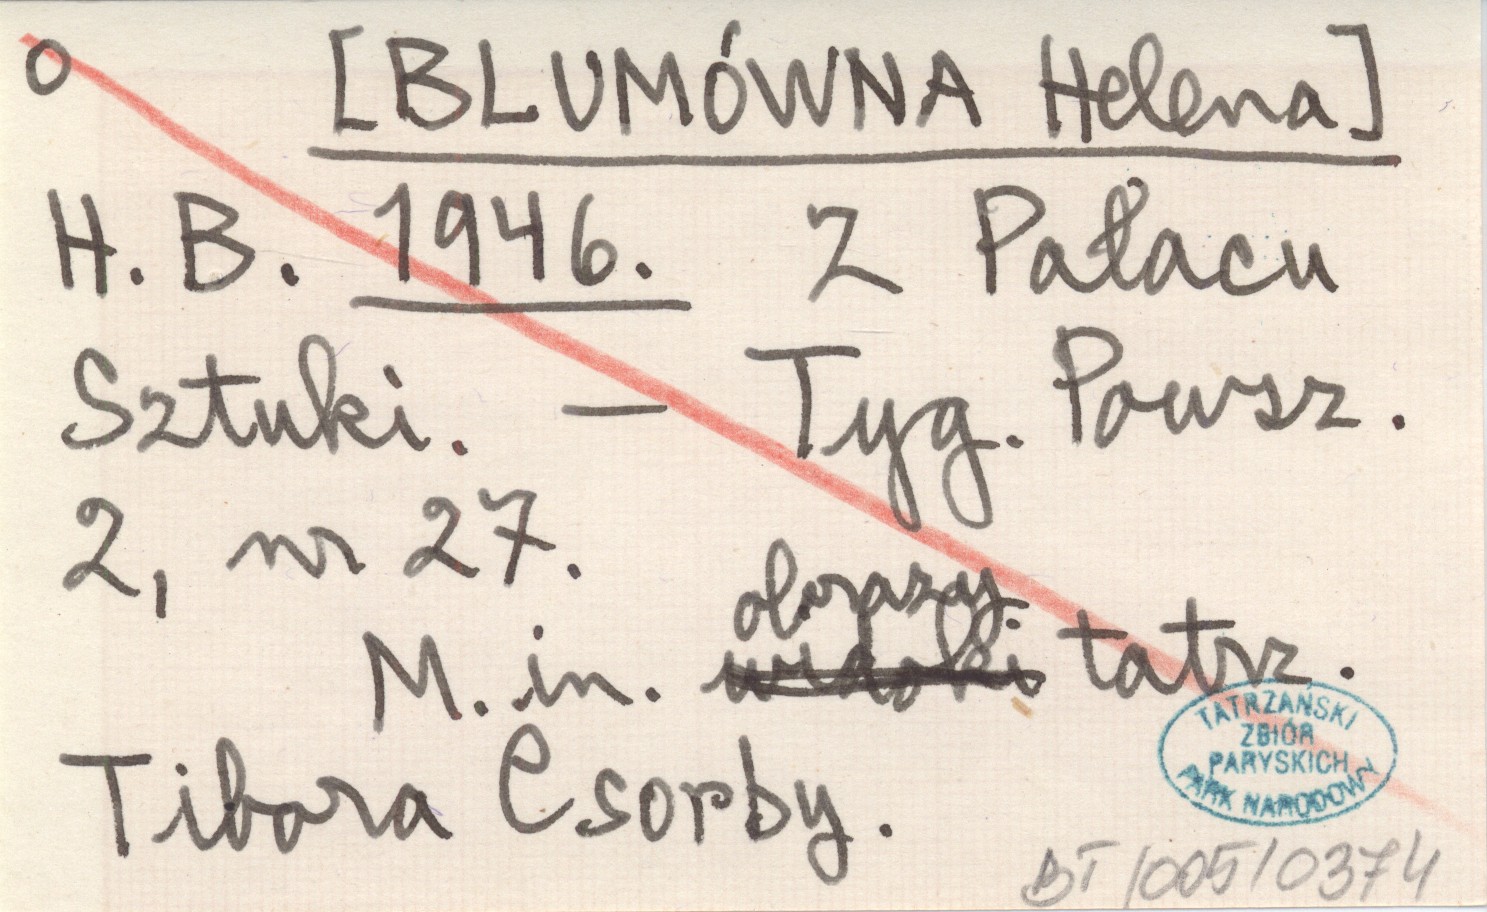 o [BLUMÓWNA Helena]
H. B. 1946. Z Pałacu
Sztuki. — Tyg. Powsz.
2, nr 27.
obrazy
M. in. widoki tatrz.
Tibora Csorby.
TATRZAŃSKI
ZBIÓR
PARYSKICH
PARK NARODOWY
BT/005/0374